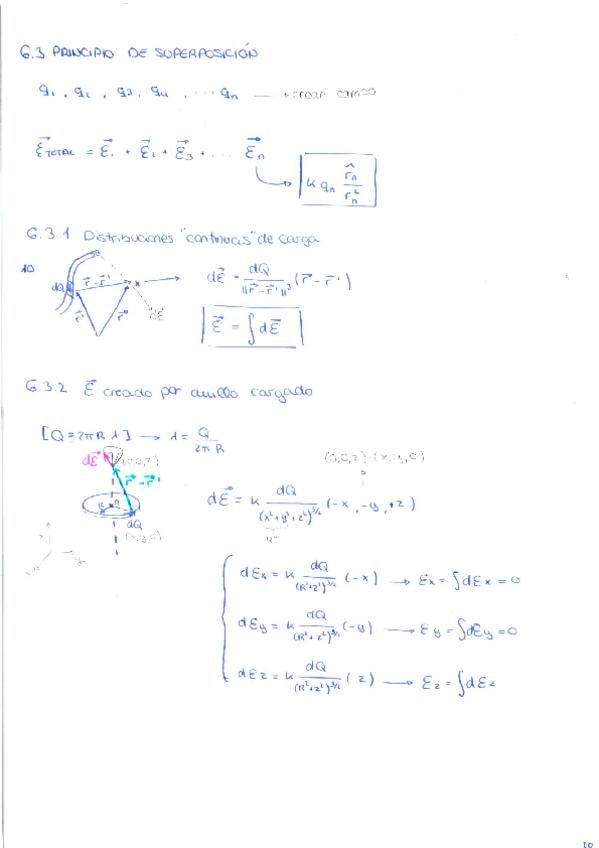 6.3 PRINCIPIO DE SUPERPOSICIÓN
q₁, q₂, q₃, q₄, ... qₙ → crean campo
E⃗ TOTAL = E⃗₁ + E⃗₂ + E⃗₃ + ... E⃗ₙ
k qₙ r̂ₙ / rₙ²
6.3.1 Distribuciones "continuas" de carga
1D
dQ r⃗-r⃗' x
r⃗' r⃗ dE⃗
dE⃗ = dQ / ||r⃗-r⃗'||³ (r⃗-r⃗')
E⃗ = ∫dE⃗
6.3.2 E⃗ creado por anillo cargado
[Q=2πRλ] → λ = Q / 2πR
dE⃗ (0,0,z)
(0,0,z)-(x,y,0)
r⃗-r⃗'
dE⃗ = k dQ / (x²+y²+z²)^3/2 (-x, -y, +z)
R²
R
dQ
(x,y,0)
dEx = k dQ / (R²+z²)^3/2 (-x) → Ex = ∫dEx = 0
dEy = k dQ / (R²+z²)^3/2 (-y) → Ey = ∫dEy = 0
dEz = k dQ / (R²+z²)^3/2 (z) → Ez = ∫dEz